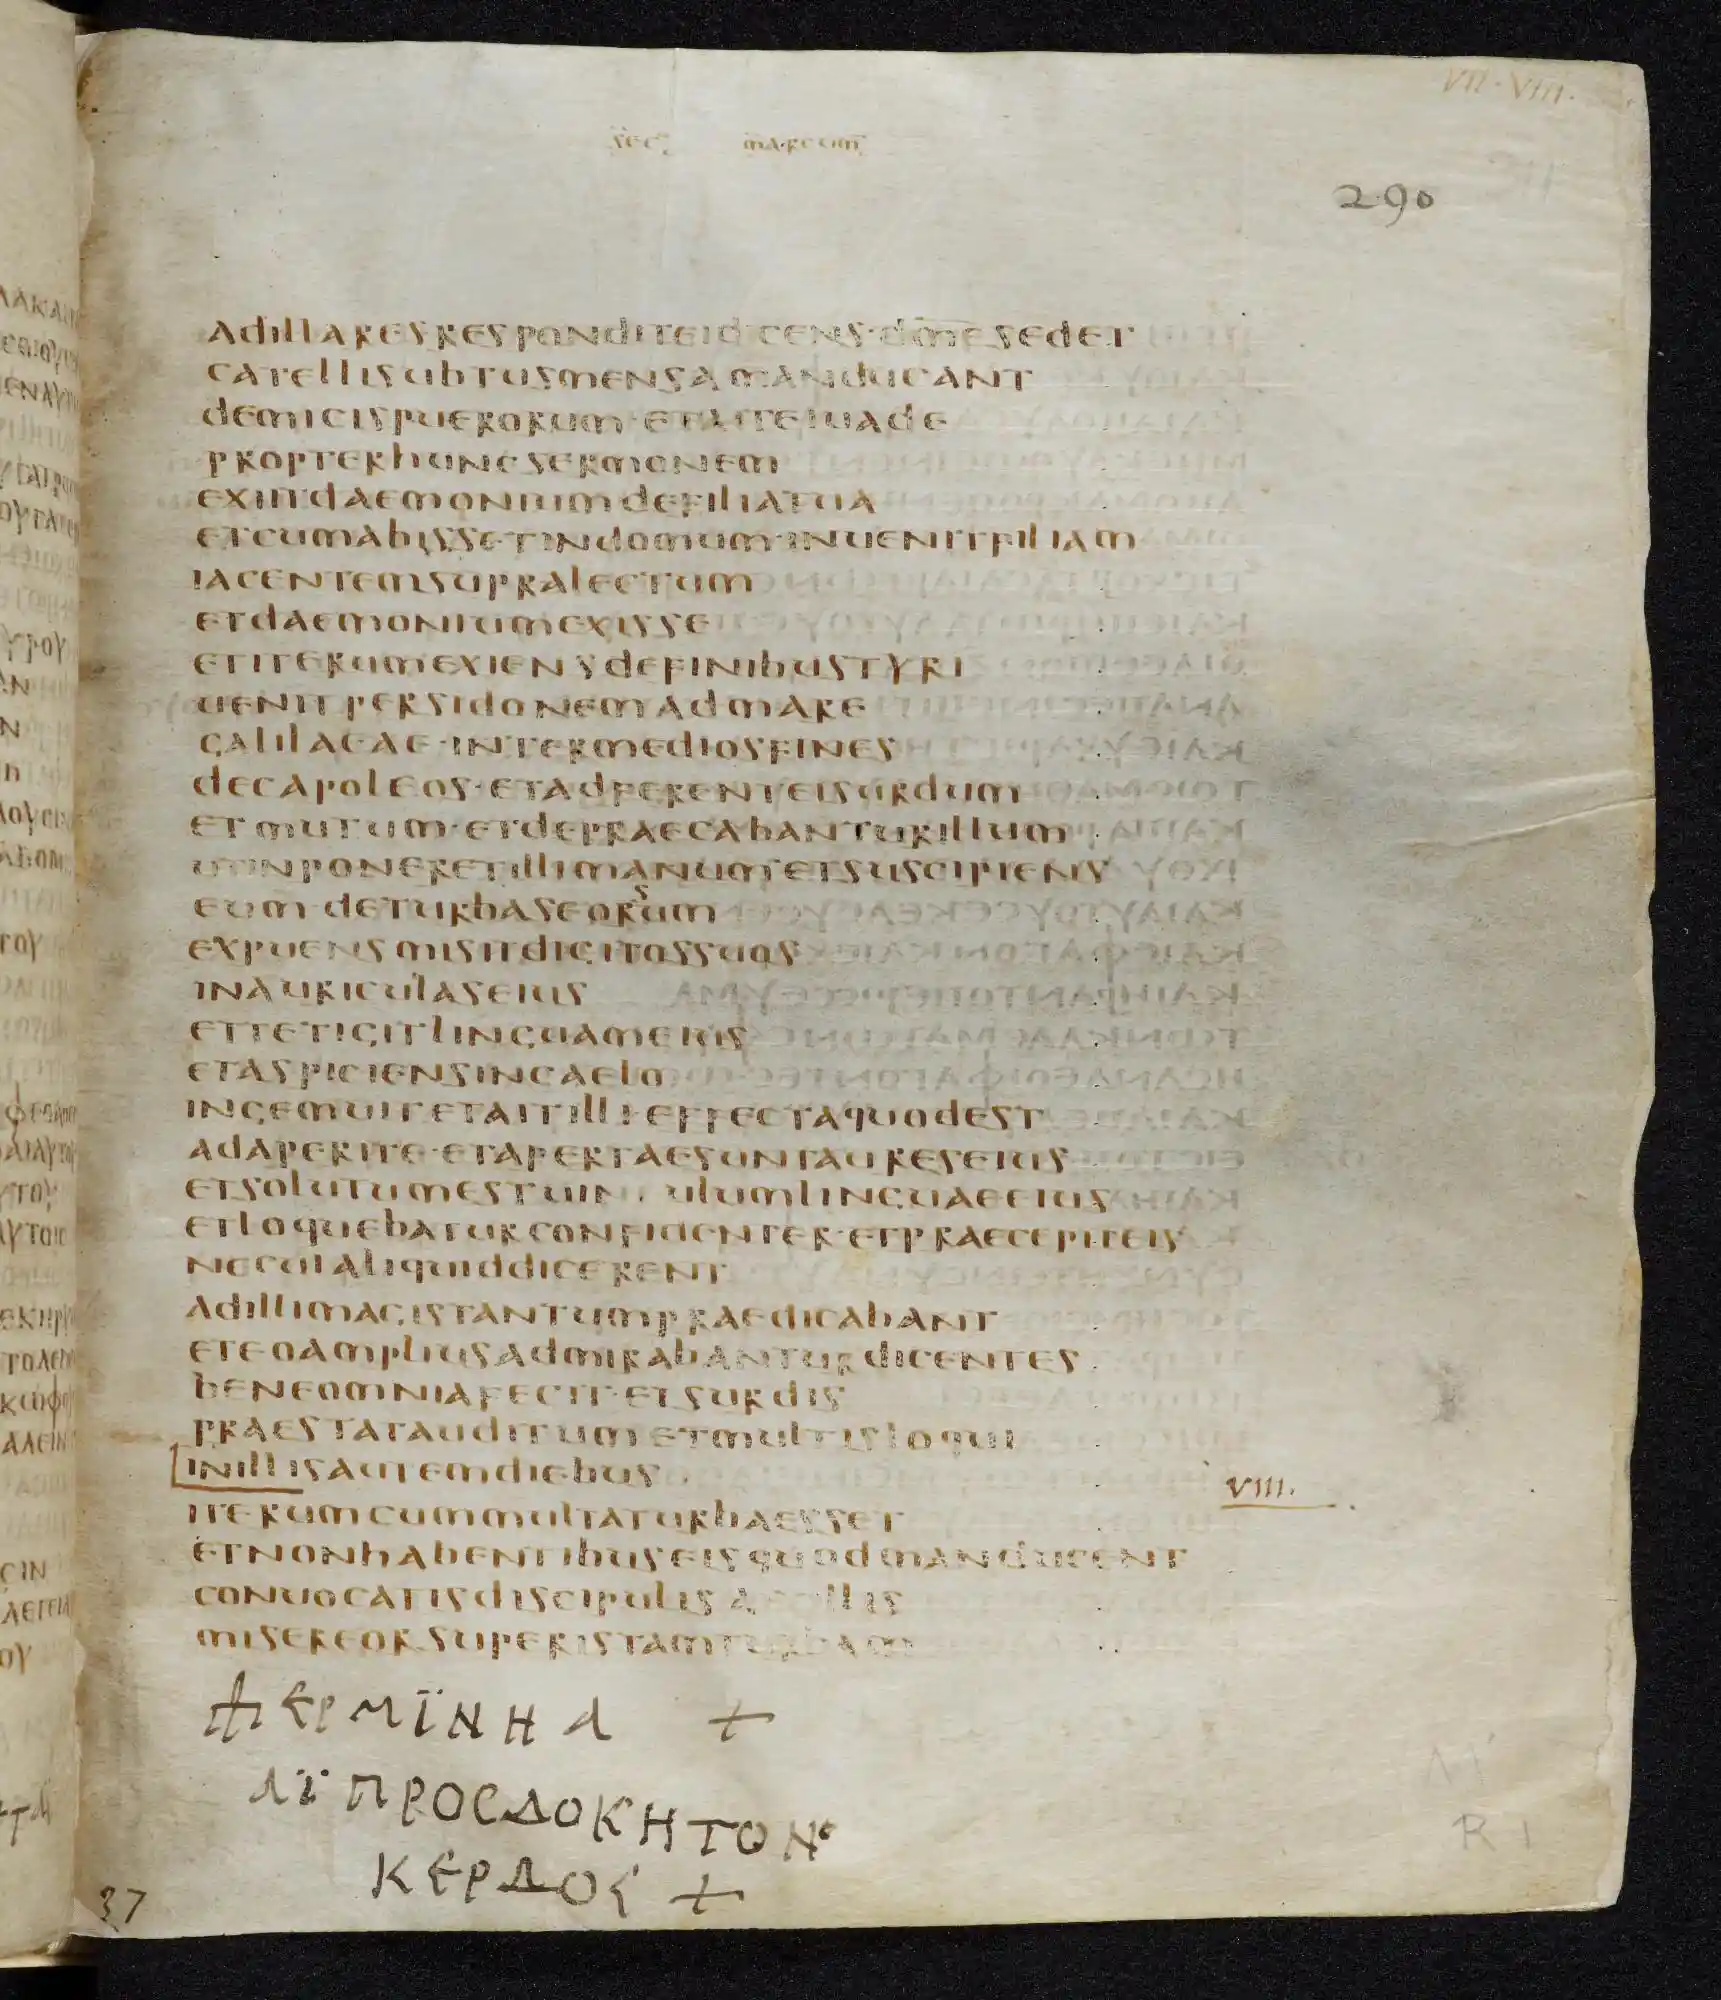 VII · VIII ·
sec marcum
290
adillarespondit eidicens·dm̅esedet
catellisubtusmensamanducant
demicispuerorum·etaiteiuade
propterhuncsermonem
exiitdaemoniumdefiliatua
etcumabissetindomum·inuenitfiliam
iacentemsupralectum
etdaemoniumexisse
etiterumexiensdefinibustyri
uenitpersidonemadmare
galilaeae·intermediosfines
decapoleos·etadferenteisurdum
etmutum·etdepraecabanturillum
utinponeretillimanum·etsuscipiens
eum·deturbaseorsum
expuensmisitdigitossuos
inauriculaseius
ettetigitlinguameius
etaspiciensincaelo
ingemuitetaitilli·effectaquodest
adaperite·etapertaesuntaureseius
etsolutumestuinculumlinguaeeius
etloquebaturconfidenter·etpraecepiteis
necuialiquiddicerent
adillimagistantumpraedicabant
eteoampliusadmirabanturdicentes
beneomniafecit·etsurdis
praestatauditumetmultisloqui
inillisautemdiebus
VIII.
iterumcummultaturbaesset
etnonhabentibuseisquodmanducent
conuocatisdiscipulisaitillis
misereorsuperistamturbam
⳨ ερμϊνηα +
αϊπροσδοκητον
κερδος +
37